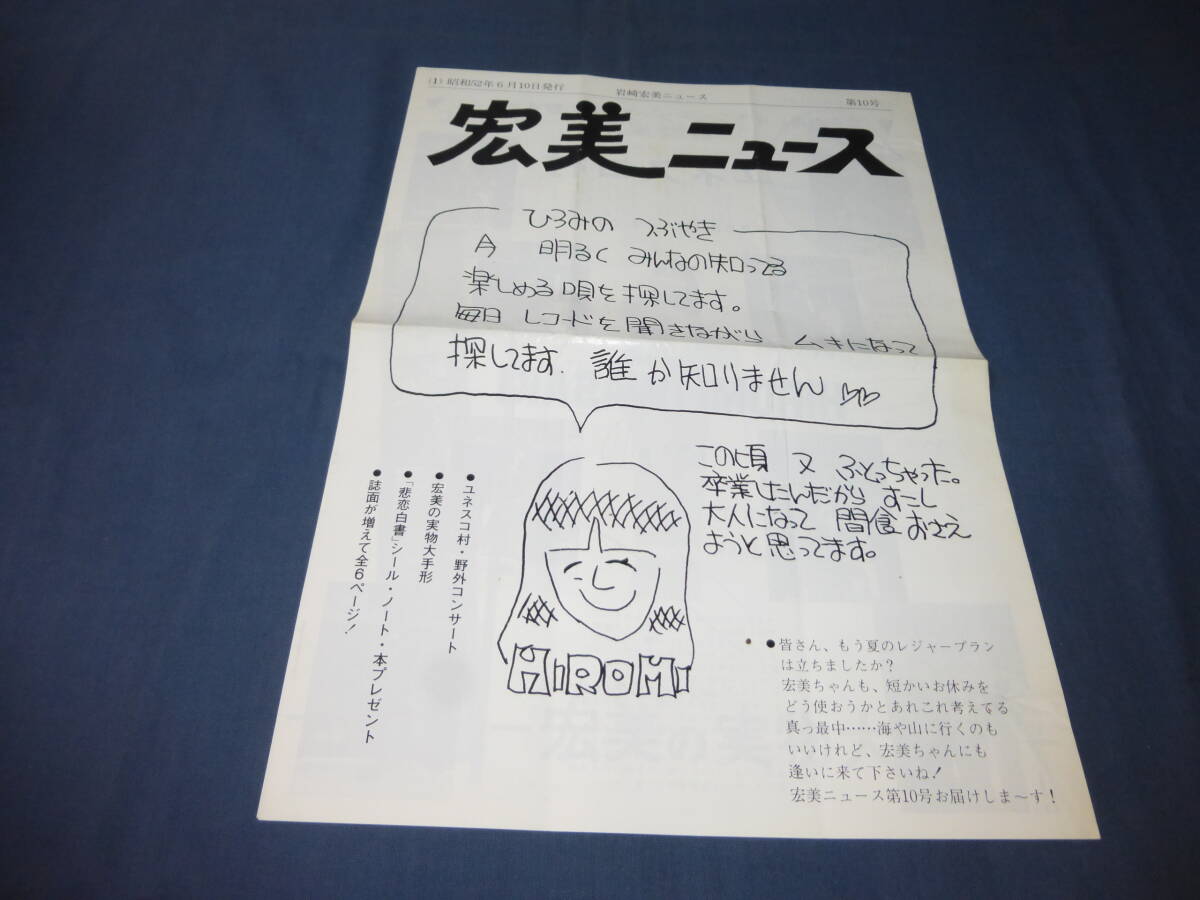 (1) 昭和52年6月10日発行 岩崎宏美ニュース 第10号
宏美ニュース
ひろみの つぶやき
今 明るく みんなの知ってる
楽しめる唄を探してます。
毎日 レコードを聞きながら ムキになって
探してます. 誰か知りません♡♡
この頃 又 ふとっちゃった。
卒業したんだから すこし
大人になって 間食おさえ
ようと思ってます。
●ユネスコ村・野外コンサート
●宏美の実物大手形
●「悲恋白書」シール・ノート・本プレゼント
●誌面が増えて全6ページ!
HIROMI
●皆さん、もう夏のレジャープラン
は立ちましたか?
宏美ちゃんも、短かいお休みを
どう使おうかとあれこれ考えてる
真っ最中……海や山に行くのも
いいけれど、宏美ちゃんにも
逢いに来て下さいね!
宏美ニュース第10号お届けしま〜す!